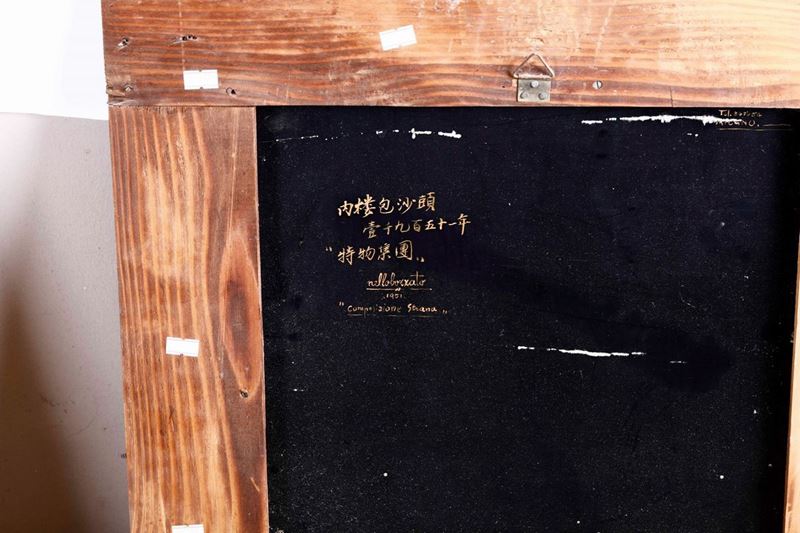 内楼包沙頭
壹千九百五十一年
"特物集團„
nelloboixato
1951
"Composizione Strana„
MILANO.